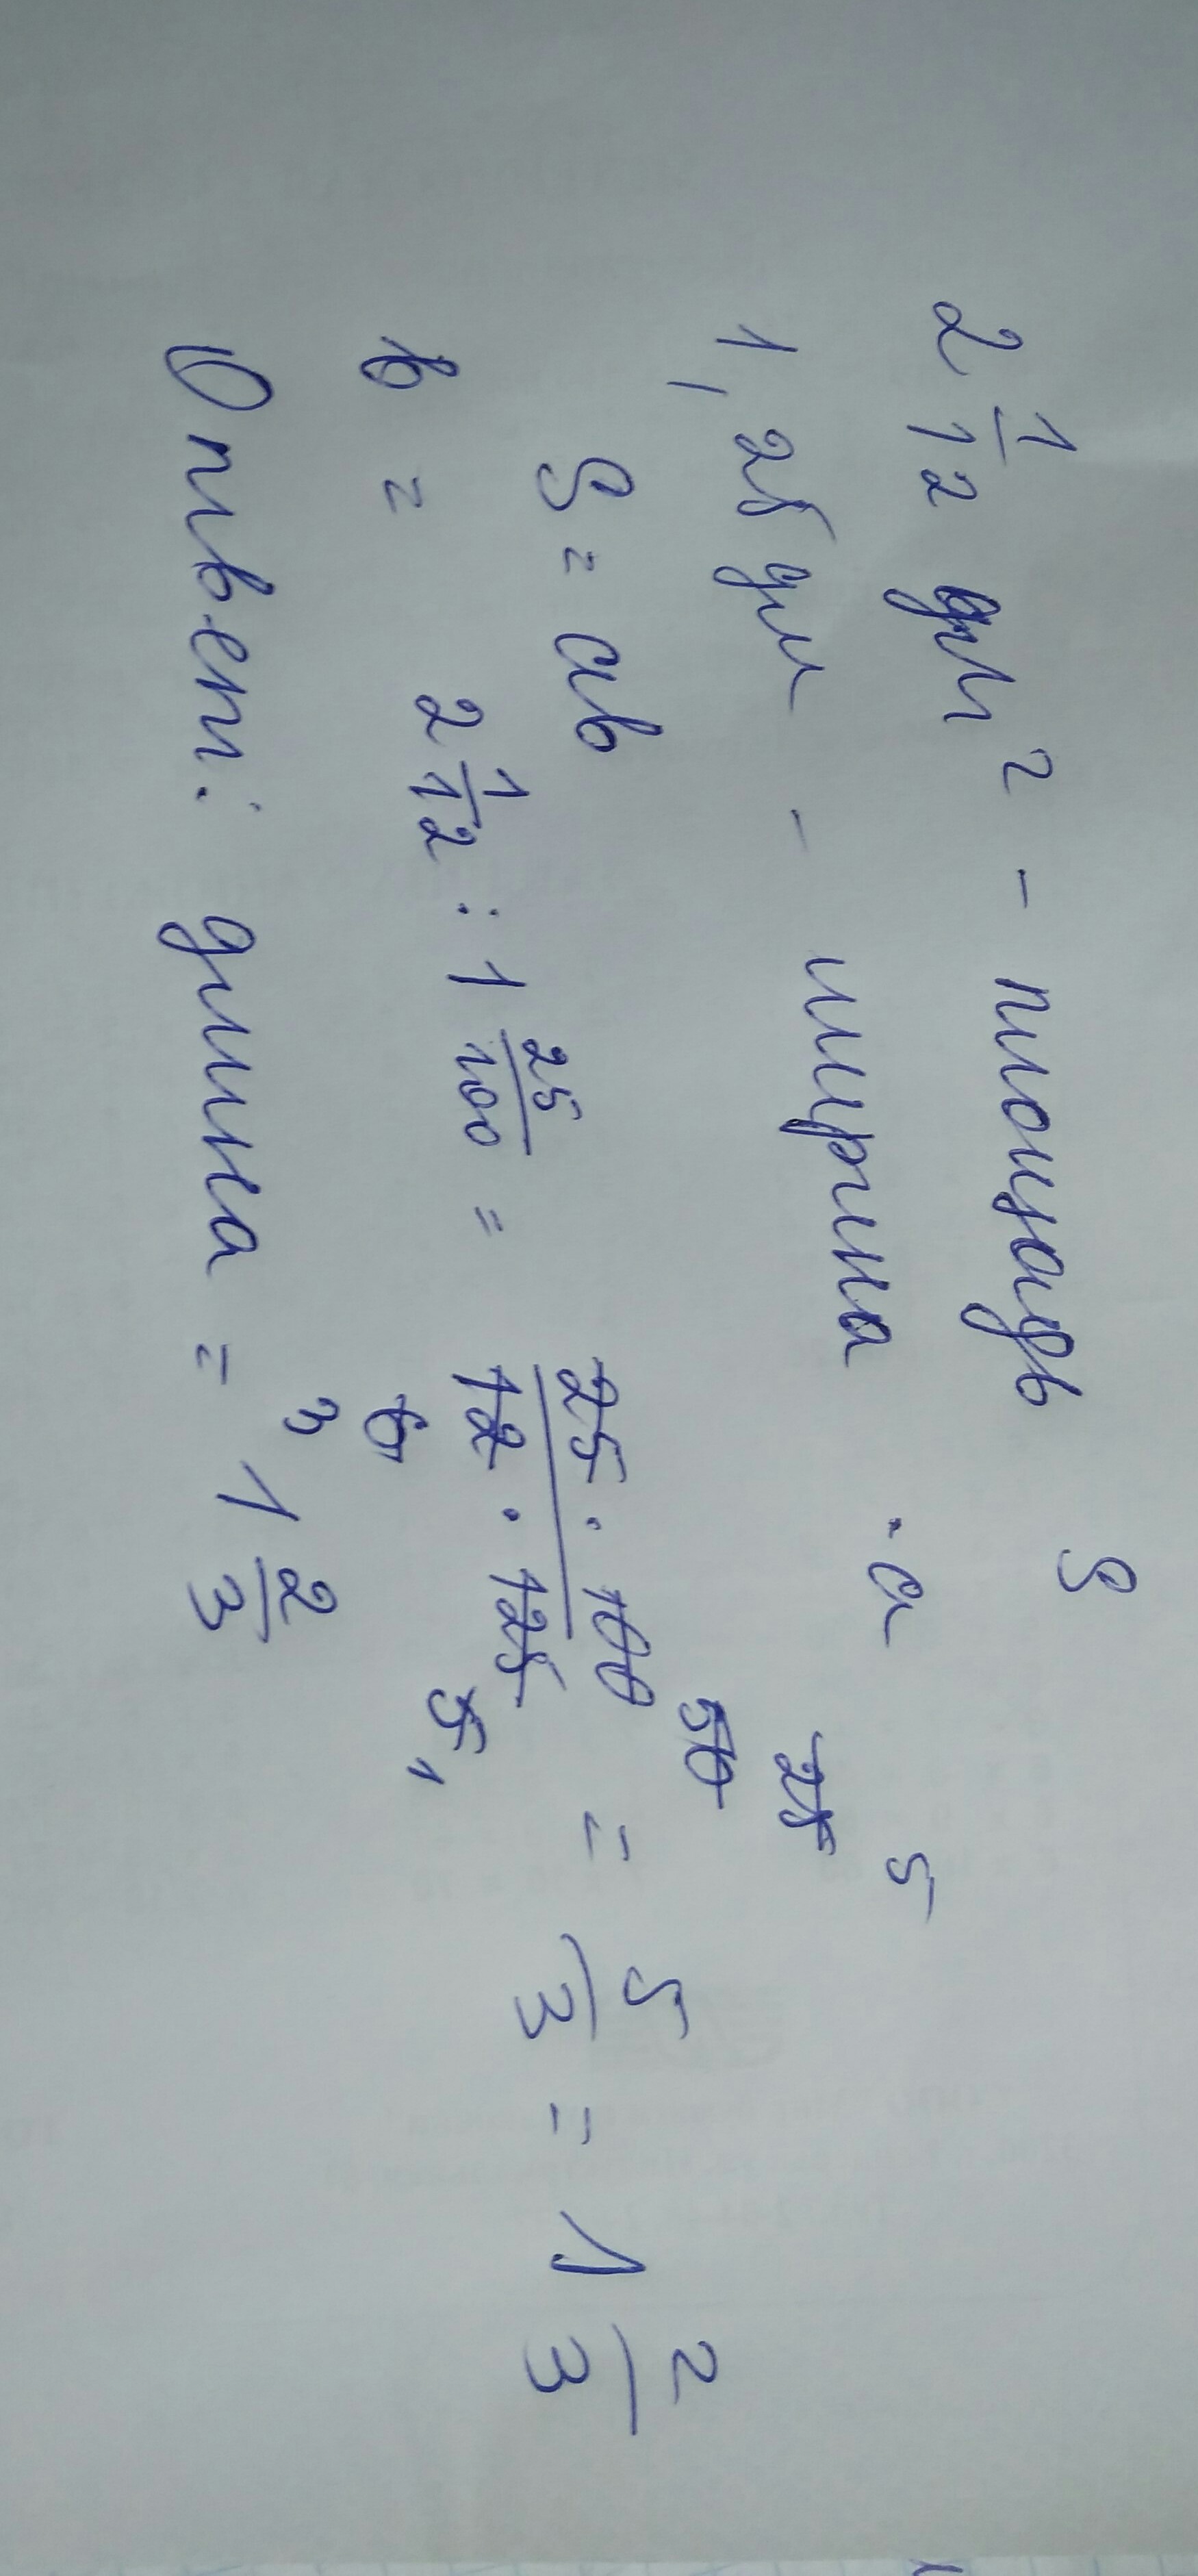 2 1/12 дм² - площадь S
1,25 дм - ширина . a
S = ab
b = 2 1/12 : 1 25/100 = 25 · 100 / 12 · 125 = 5/3 = 1 2/3
50 25 5
6 5 1
3
Ответ: длина = 1 2/3